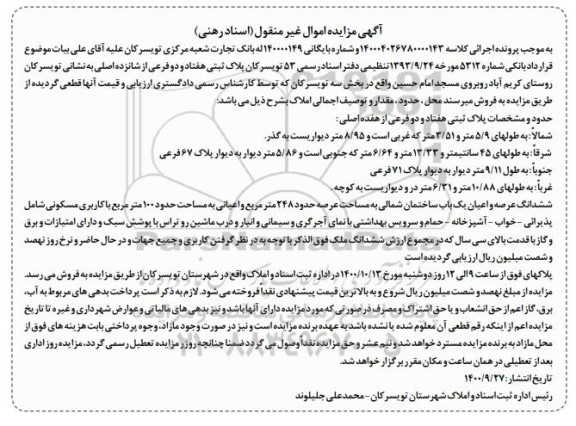 آگهی مزایده اموال غیر منقول (اسناد رهنی)
به موجب پرونده اجرائی کلاسه ۱۴۰۰۰۴۰۲۶۷۸۰۰۰۰۱۴۳ و شماره بایگانی ۱۴۰۰۰۰۱۴۹ له بانک تجارت شعبه مرکزی تویسرکان علیه آقای علی بیات موضوع
قرارداد بانکی شماره ۵۳۱۲ مورخه ۱۳۹۳/۹/۲۴ تنظیمی دفتر اسناد رسمی ۵۳ تویسرکان پلاک ثبتی هفتاد و دو فرعی از شانزده اصلی به نشانی تویسرکان
روستای کریم آباد روبروی مسجد امام حسین واقع در بخش سه تویسرکان که توسط کارشناس رسمی دادگستری ارزیابی و قیمت آنها قطعی گردیده از
طریق مزایده به فروش میرسند محل، حدود، مقدار و توصیف اجمالی املاک بشرح ذیل می باشد:
حدود و مشخصات پلاک ثبتی هفتاد و دو فرعی از هفده اصلی:
شمالاً: به طولهای ۵/۹ متر و ۳/۵۱ متر که غربی است و ۸/۹۵ متر دیواریست به گذر.
شرقاً: به طولهای ۴۵ سانتیمتر و ۱۳/۳۳ متر و ۶/۶۴ متر که جنوبی است و ۵/۸۶ متر دیوار به دیوار پلاک ۶۷ فرعی
جنوباً: به طول ۹/۱۱ متر دیوار به دیوار پلاک ۷۱ فرعی
غرباً: به طولهای ۱۰/۸۸ متر و ۶/۳۱ متر در و دیواریست به کوچه.
ششدانگ عرصه و اعیان یک باب ساختمان شمالی به مساحت عرصه حدود ۲۴۸ متر مربع و اعیانی به مساحت حدود ۱۰۰ متر مربع با کاربری مسکونی شامل
پذیرائی - خواب - آشپزخانه - حمام و سرویس بهداشتی با نمای آجر گری و سیمانی و انبار و درب ماشین رو تراس با پوشش سبک و دارای امتیازات و برق
و گاز با قدمت بالای سی سال که در مجموع ارزش ششدانگ ملک فوق الذکر با توجه به در نظر گرفتن کاربری و جمیع جهات و در حال حاضر و نرخ روز نهصد
و شصت میلیون ریال ارزیابی گردیده است
پلاکهای فوق از ساعت ۹ الی ۱۲ روز دوشنبه مورخ ۱۴۰۰/۱۰/۱۳ در اداره ثبت اسناد و املاک واقع در شهرستان تویسرکان از طریق مزایده به فروش می رسد.
مزایده از مبلغ نهصد و شصت میلیون ریال شروع و به بالاترین قیمت پیشنهادی نقدا فروخته می شود. لازم به ذکر است پرداخت بدهی های مربوط به آب،
برق، گاز اعم از حق انشعاب و یا حق اشتراک و مصرف در صورتی که مورد مزایده دارای آنها باشد و نیز بدهی های مالیاتی و عوارض شهرداری و غیره تا تاریخ
مزایده اعم از اینکه رقم قطعی آن معلوم شده یا نشده باشد به عهده برنده مزایده است و نیز در صورت وجود مازاد، وجوه پرداختی بابت هزینه های فوق از
محل مازاد به برنده مزایده مسترد خواهد شد و نیم عشر و حق مزایده نقدا وصول می گردد ضمنا چنانچه روز مزایده تعطیل رسمی گردد، مزایده روز اداری
بعد از تعطیلی در همان ساعت و مکان مقرر برگزار خواهد شد.
تاریخ انتشار: ۱۴۰۰/۹/۲۷
رئیس اداره ثبت اسناد و املاک شهرستان تویسرکان - محمدعلی جلیلوند